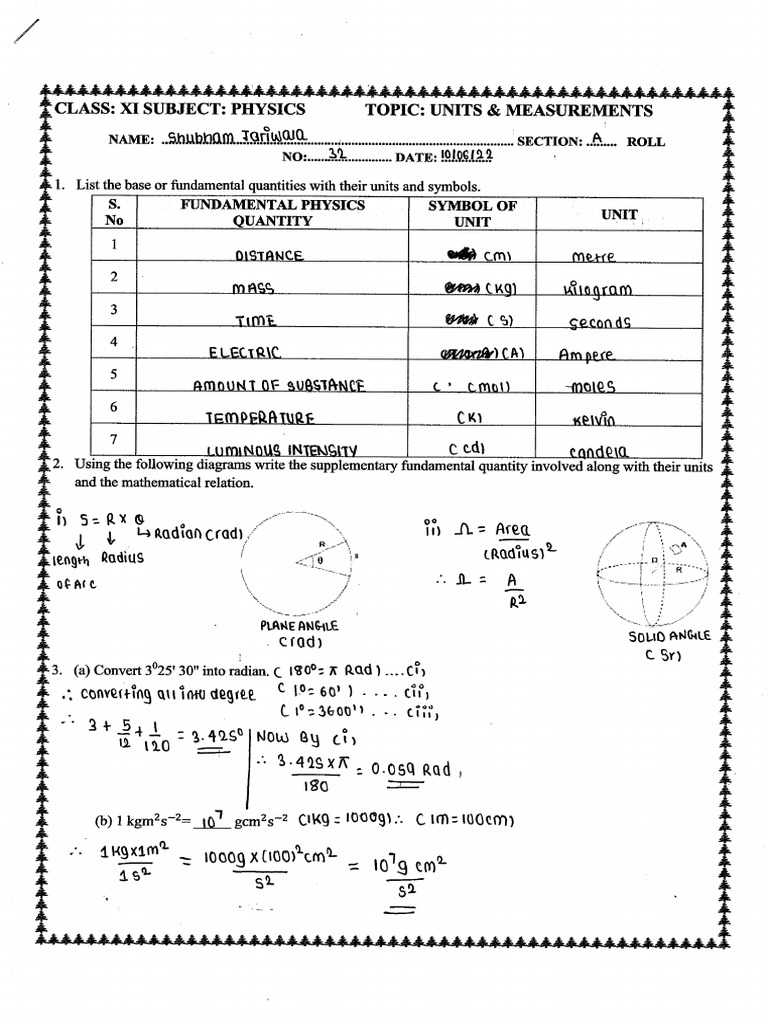 CLASS: XI SUBJECT: PHYSICS TOPIC: UNITS & MEASUREMENTS
NAME: Shubham Jariwala SECTION: A ROLL
NO: 32 DATE: 10/06/22
1. List the base or fundamental quantities with their units and symbols.
S. No FUNDAMENTAL PHYSICS QUANTITY SYMBOL OF UNIT UNIT
1 DISTANCE (m) metre
2 MASS (kg) kilogram
3 TIME (s) seconds
4 ELECTRIC (A) Ampere
5 AMOUNT OF SUBSTANCE (mol) moles
6 TEMPERATURE (K) kelvin
7 LUMINOUS INTENSITY (cd) candela
2. Using the following diagrams write the supplementary fundamental quantity involved along with their units
and the mathematical relation.
i) S = R × θ
↳ Radian (rad)
↓ ↓
length Radius
of Arc
R θ s
PLANE ANGLE
(rad)
ii) Ω = Area / (Radius)²
∴ Ω = A / R²
A Ω R
SOLID ANGLE
(Sr)
3. (a) Convert 3⁰25' 30" into radian. (180° = π Rad) ....(i)
∴ converting all into degree (1° = 60') .....(ii)
(1° = 3600'') ...(iii)
∴ 3 + 5/12 + 1/120 = 3.425°
Now By (i)
∴ 3.425 × π / 180 = 0.059 Rad
(b) 1 kgm²s⁻²= 10⁷ gcm²s⁻² (1kg = 1000g) ∴ (1m = 100cm)
∴ 1kg×1m² / 1s² = 1000g × (100)² cm² / s² = 10⁷ g cm² / s²